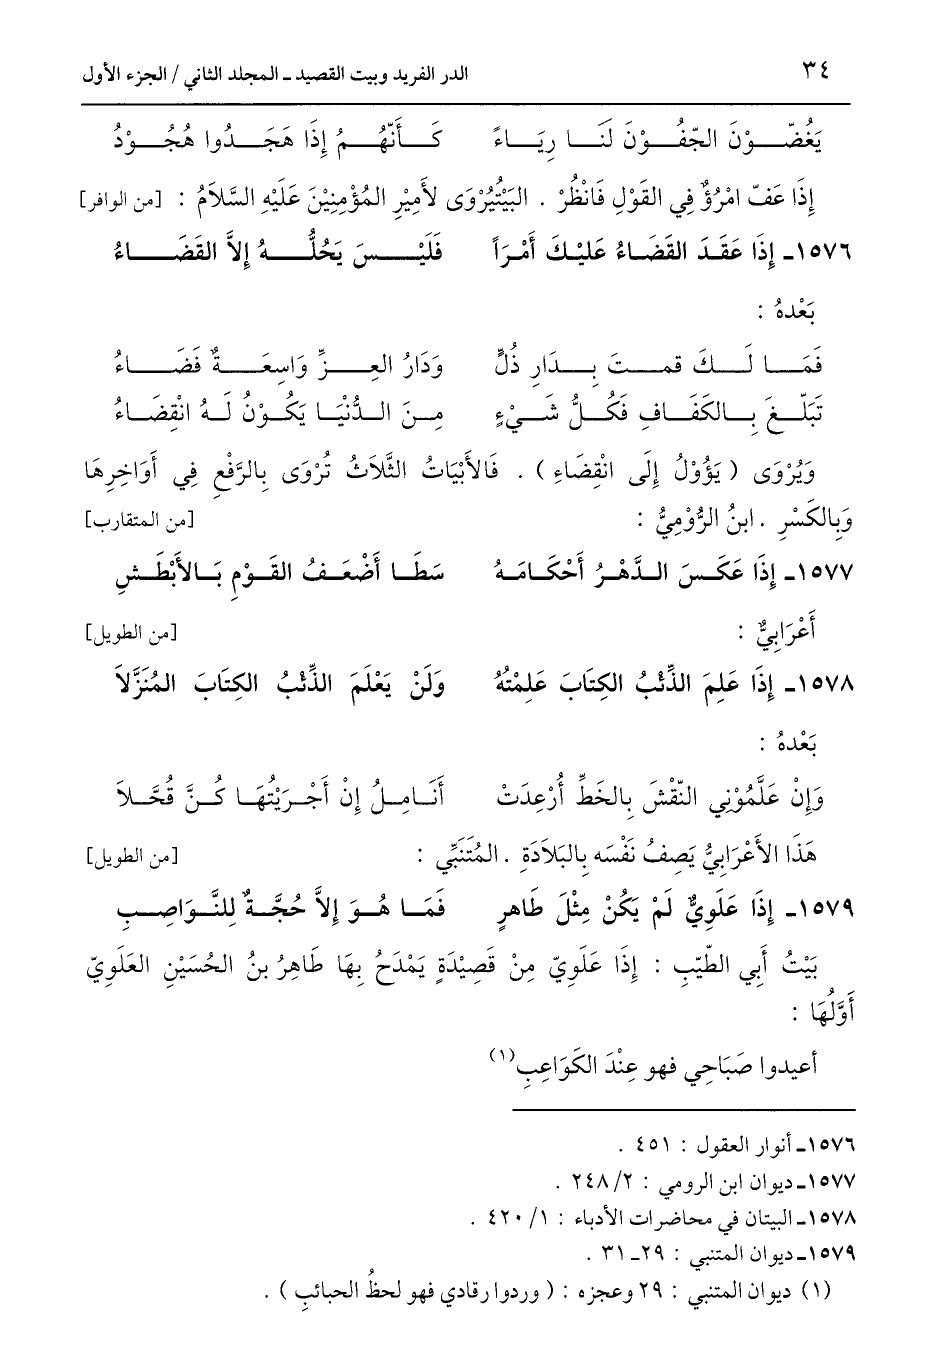 ٣٤ الدر الفريد وبيت القصيد ـ المجلد الثاني / الجزء الأول
يَغُضّـوْنَ الجّفُـوْنَ لَنَـا رِيَـاءً كَـأَنَّهُـمُ إِذَا هَجَـدُوا هُجُـوْدُ
إِذَا عَفّ امْرُؤٌ فِي القَوْلِ فَانْظُرْ . البَيْتُيُرْوَى لأَمِيْرِ المُؤْمِنِيْنَ عَلَيْهِ السَّلاَمُ : [من الوافر]
١٥٧٦ـ إِذَا عَقَـدَ القَضَـاءُ عَلَيْـكَ أَمْـرَاً فَلَيْـسَ يَحُلُّـهُ إِلاَّ القَضَـاءُ
بَعْدهُ :
فَمَـا لَـكَ قمـتَ بِـدَارِ ذُلٍّ وَدَارُ العِـزِّ وَاسِعَـةٌ فَضَـاءُ
تَبَلّـغَ بِـالكَفَـافِ فَكُـلُّ شَـيْءٍ مِـنَ الـدُّنْيَـا يَكُـوْنُ لَـهُ انْقِضَـاءُ
وَيُرْوَى ( يَؤُوْلُ إِلَى انْقِضَاءِ ) . فَالأَبْيَاتُ الثَّلاَثُ تُرْوَى بِالرَّفْعِ فِي أَوَاخِرِهَا
وَبِالكَسْرِ . ابنُ الرُّوْمِيُّ : [من المتقارب]
١٥٧٧ـ إِذَا عَكَـسَ الـدَّهْـرُ أَحْكَـامَـهُ سَطَـا أَضْعَـفُ القَـوْمِ بَـالأَبْطَـشِ
أَعْرَابِيٌّ : [من الطويل]
١٥٧٨ـ إِذَا عَلِمَ الذِّئْبُ الكِتَابَ عَلِمْتُهُ وَلَنْ يَعْلَمَ الذِّئْبُ الكِتَابَ المُنَزَّلاَ
بَعْدهُ :
وَإِنْ عَلَّمُوْنِي النّقْشَ بِالخَطِّ أُرْعِدَتْ أَنَـامِـلُ إِنْ أَجْـرَيْتُهَـا كُـنَّ قُحَّـلاَ
هَذَا الأَعْرَابِيُّ يَصِفُ نَفْسَه بِالبَلاَدَةِ . المُتَنَبِّي : [من الطويل]
١٥٧٩ـ إِذَا عَلَوِيٌّ لَمْ يَكُنْ مِثْلَ طَاهرٍ فَمَـا هُـوَ إِلاَّ حُجَّـةٌ لِلنَّـوَاصِـبِ
بَيْتُ أَبِي الطّيّبِ : إِذَا عَلَوِيّ مِنْ قَصِيْدَةٍ يَمْدَحُ بِهَا طَاهِرُ بنُ الحُسَيْنِ العَلَوِيّ
أَوَّلُهَا :
أعيدوا صَبَاحِي فهو عِنْدَ الكَوَاعِبِ(١)
١٥٧٦ـ أنوار العقول : ٤٥١ .
١٥٧٧ـ ديوان ابن الرومي : ٢٤٨/٢ .
١٥٧٨ـ البيتان في محاضرات الأدباء : ٤٢٠/١ .
١٥٧٩ـ ديوان المتنبي : ٢٩ـ ٣١ .
(١) ديوان المتنبي : ٢٩ وعجزه : ( وردوا رقادي فهو لحظُ الحبائبِ ) .